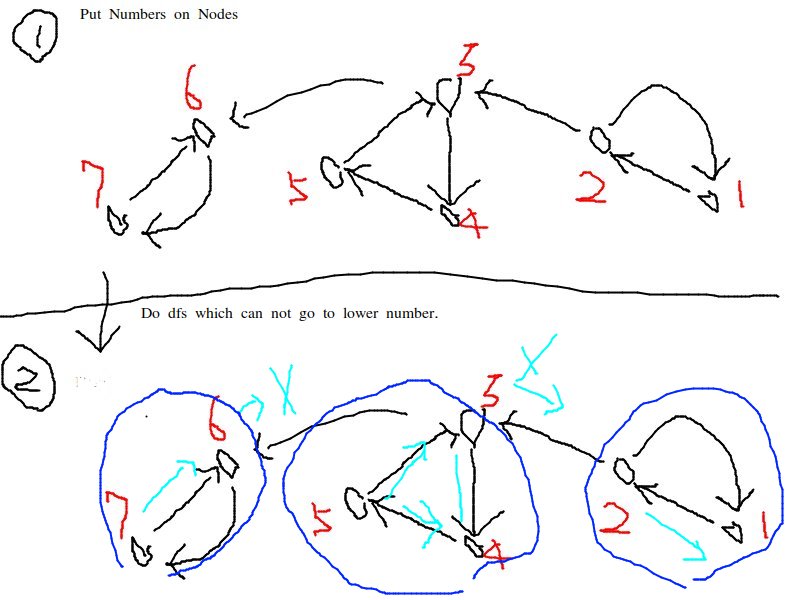 1
Put Numbers on Nodes
3
6
7
5
4
2
1
Do dfs which can not go to lower number.
2
X
X
3
6
7
5
4
2
1